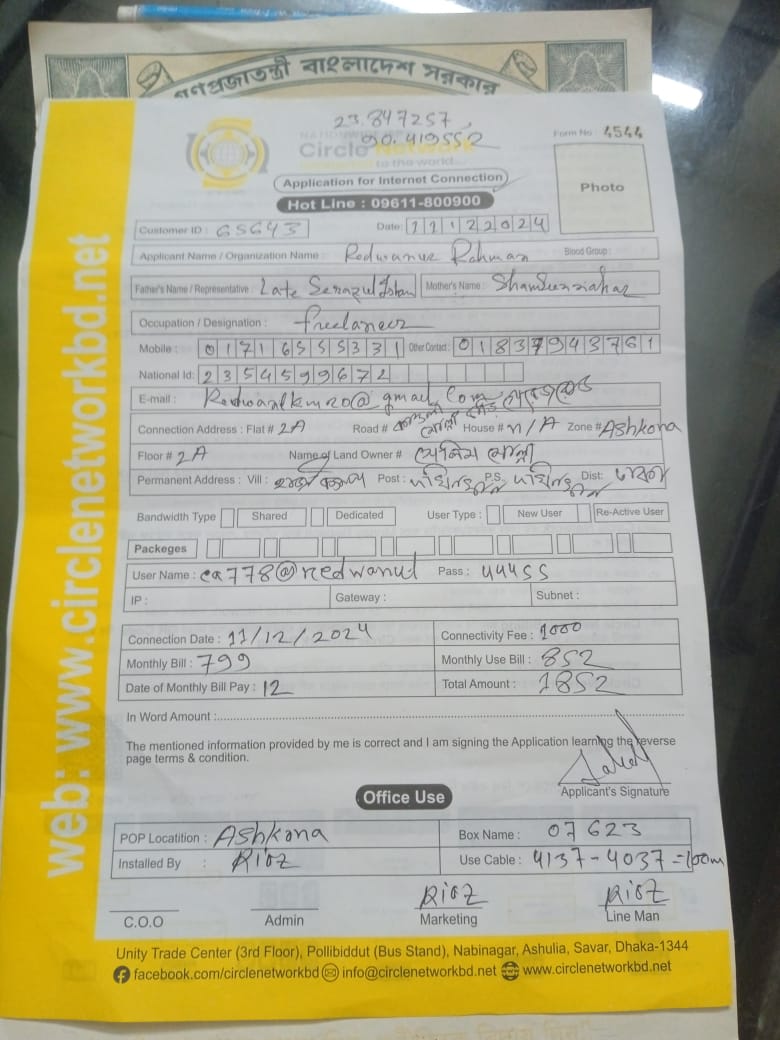 গণপ্রজাতন্ত্রী বাংলাদেশ সরকার
23.847257,
90.419552
Form No 4544
Circle Network
to the world...
Application for Internet Connection
Photo
Hot Line : 09611-800900
Customer ID : 65643 Date: 11122024
Applicant Name / Organization Name : Redwanur Rahman Blood Group :
Father's Name / Representative : Late Serazul Islam Mother's Name : Shamsunnahar
Occupation / Designation : freelancer
Mobile : 01716555331 Other Contact : 01837943761
National Id: 2354599672
E-mail : @gmail.com
Connection Address : Flat # 2A Road # House # n/A Zone # Ashkona
Floor # 2A Name of Land Owner # মোল্লা
Permanent Address : Vill : Post : দক্ষিনখান P.S. দক্ষিনখান Dist: ঢাকা
Bandwidth Type Shared Dedicated User Type : New User Re-Active User
Packeges
User Name : ca778@redwanul Pass : 44455
IP : Gateway : Subnet :
Connection Date : 11/12/2024 Connectivity Fee : 1000
Monthly Bill : 799 Monthly Use Bill : 852
Date of Monthly Bill Pay : 12 Total Amount : 1852
In Word Amount :
The mentioned information provided by me is correct and I am signing the Application learning the reverse
page terms & condition.
Applicant's Signature
Office Use
POP Locatition : Ashkona Box Name : 07623
Installed By : Rioz Use Cable : 4137-4037=100m
Rioz Rioz
C.O.O Admin Marketing Line Man
Unity Trade Center (3rd Floor), Pollibiddut (Bus Stand), Nabinagar, Ashulia, Savar, Dhaka-1344
facebook.com/circlenetworkbd info@circlenetworkbd.net www.circlenetworkbd.net
web: www.circlenetworkbd.net